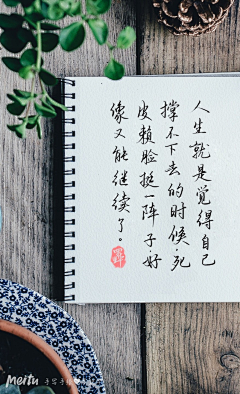 人生就是觉得自己
撑不下去的时候,死
皮赖脸挺一阵子好
像又能继续了。
Meitu
Meitu